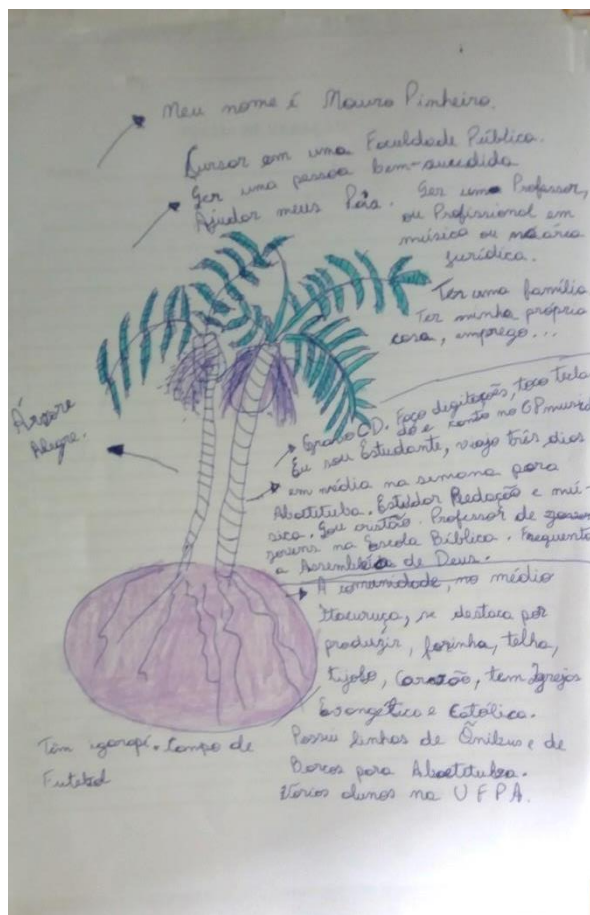 Meu nome é Mauro Pinheiro.
Cursar em uma Faculdade Pública.
Ser uma pessoa bem-sucedida
Ajudar meus Pais. Ser uma Professor,
ou Profissional em
música ou na área
jurídica.
Ter uma família
Ter minha própria
casa, emprego...
Árvore
Alegre.
Gravo CD. Faço digitações, toco tecla
do e canto no GP music
Eu sou Estudante, viajo três dias
em média na semana para
Abaetetuba. Estudar Redação e mú-
sica. Sou cristão. Professor de
jovens na Escola Bíblica. Frequento
a Assembleia de Deus.
A comunidade, no médio
Itacuruçá, se destaca por
produzir, farinha, telha,
tijolo, Carvão, tem Igrejas
Evangélica e Católica.
Possui linhas de Ônibus e de
Barcos para Abaetetuba.
Vários alunos na UFPA.
Têm igarapé. Campo de
Futebol